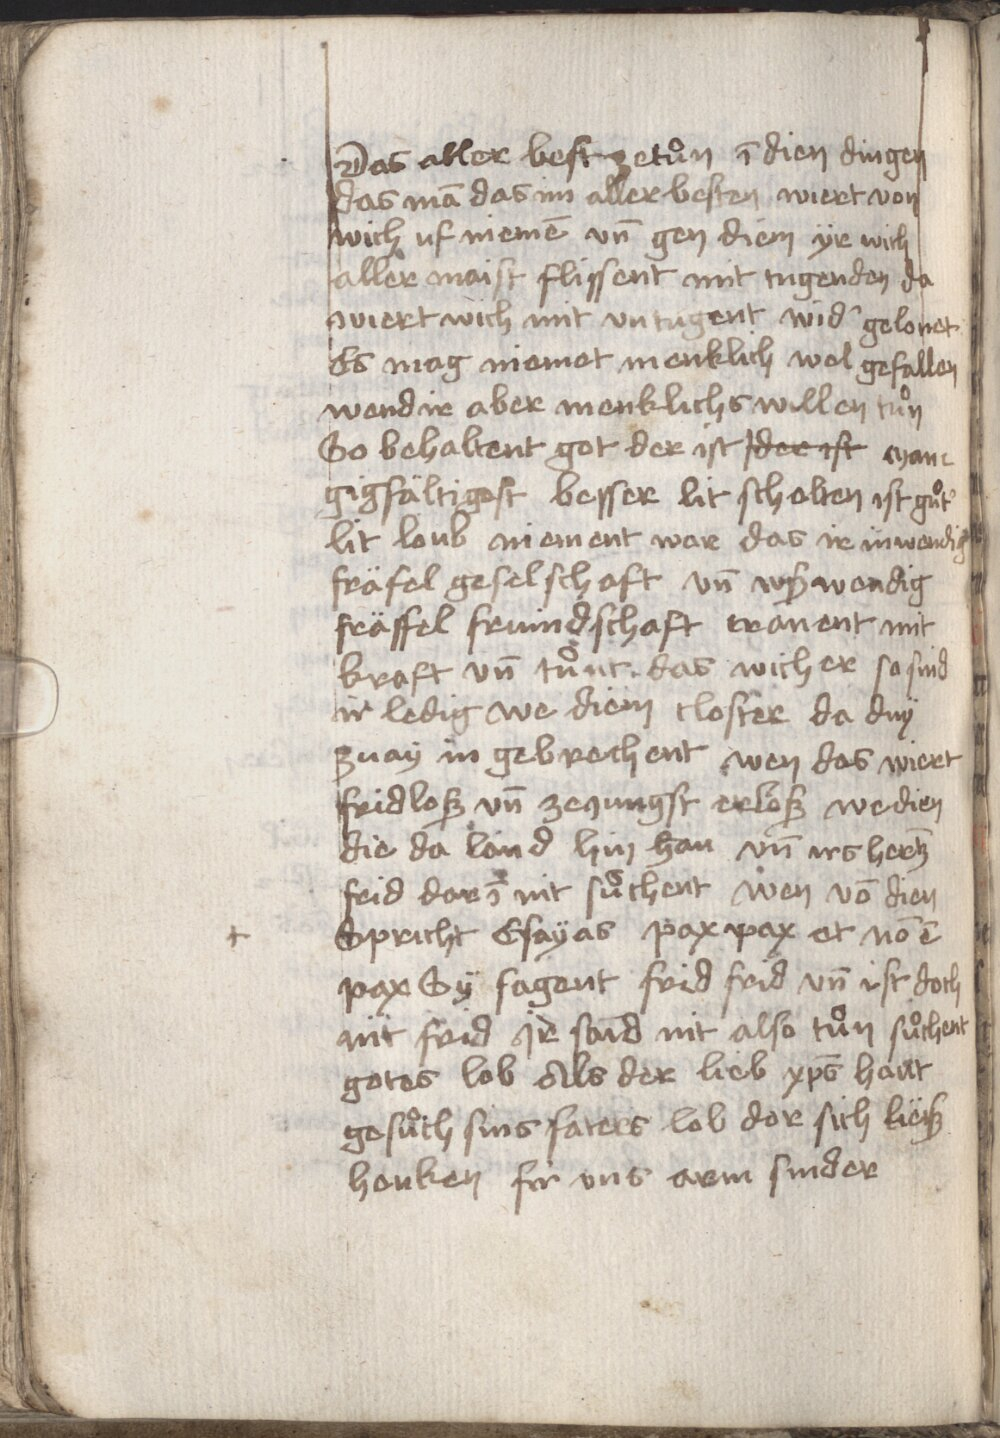 Das aller best zetůn ī dien dingen
das mā das im aller besten wiert von
wich uf niemē vn̄ gen diem yr wich
aller maist flissent mit tugenden da
wiert wich mit vntugent wid' gelonet
Es mag niemet menklich wol gefallen
wend ir aber menklichs willen tůn
So behaltent got der ist der ist man
gigfältigost besser lit schelten ist gůt
lit loub niement war das ir inwendig
fräfel geselschaft vn̄ wendig
fräffel fruindschaft trauent mit
kraft vn̄ tůnt das wicher so sind
ir ledig we diem closter da duÿ
zuaÿ in gebrechent wen das wiert
fridloß vn̄ erloß we dien
die da laund hin han vn̄ irs hertz
frid dar ī nit sůchent wen vō dien
Spricht Esaÿas pax pax et nō ē
pax Sÿ sagent frid frid vn̄ ist doch
nit frid Ir sond nit also tůn sůchent
gotes lob Als der lieb xp̄s haut
gesůch sins faters lob der sich ließ
henken fir vns arm sinder